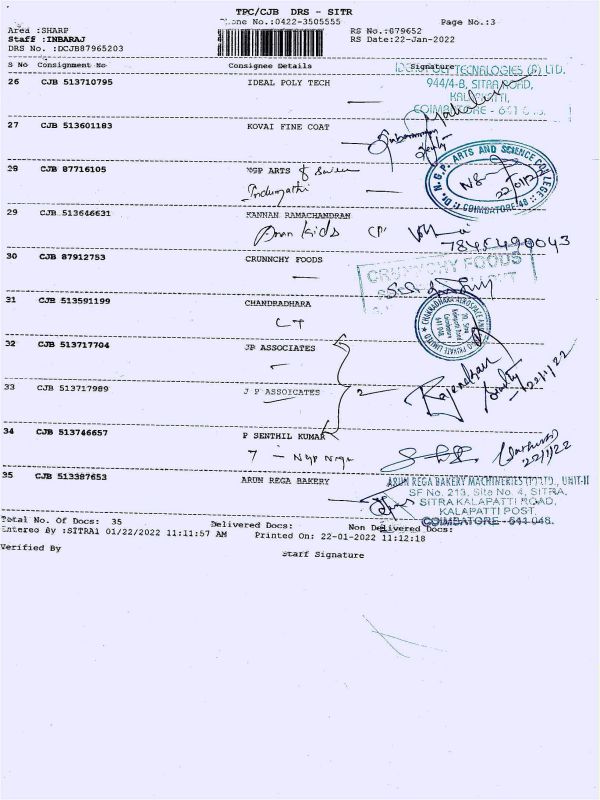 TPC/CJB DRS - SITR
Phone No.:0422-3505555
Page No.:3
Area :SHARP
RS No.:879652
Staff :INBARAJ
RS Date:22-Jan-2022
DRS No. :DCJB87965203
S No Consignment No Consignee Details Signature
26 CJB 513710795 IDEAL POLY TECH
POLYTECHNALOGIES (P) LTD.
944/4-B, SITRA ROAD,
KALAPATTI,
COIMBATORE - 641
27 CJB 513601183 KOVAI FINE COAT
28 CJB 87716105 NGP ARTS & Science
Indumathi
Dr. N.G.P. ARTS AND SCIENCE COLLEGE
COIMBATORE-48
29 CJB 513646631 KANNAN RAMACHANDRAN
kids
7845490043
30 CJB 87912753 CRUNNCHY FOODS
CRUNNCHY FOODS
31 CJB 513591199 CHANDRADHARA
CT
CHANDRADHARA AEROSPACE AND
PRIVATE LIMITED
32 CJB 513717704 JP ASSOCIATES
33 CJB 513717989 J P ASSOICATES
2
Rajendran
22/1/22
34 CJB 513746657 P SENTHIL KUMAR
7 -
22/1/22
35 CJB 513387653 ARUN REGA BAKERY
ARUN REGA BAKERY MACHINERIES (P) LTD., UNIT-II
SF No. 213, Site No. 4, SITRA,
SITRA KALAPATTI ROAD,
KALAPATTI POST,
COIMBATORE - 641 048.
Total No. Of Docs: 35 Delivered Docs: Non Delivered Docs:
Entered By :SITRA1 01/22/2022 11:11:57 AM Printed On: 22-01-2022 11:12:18
Verified By Staff Signature